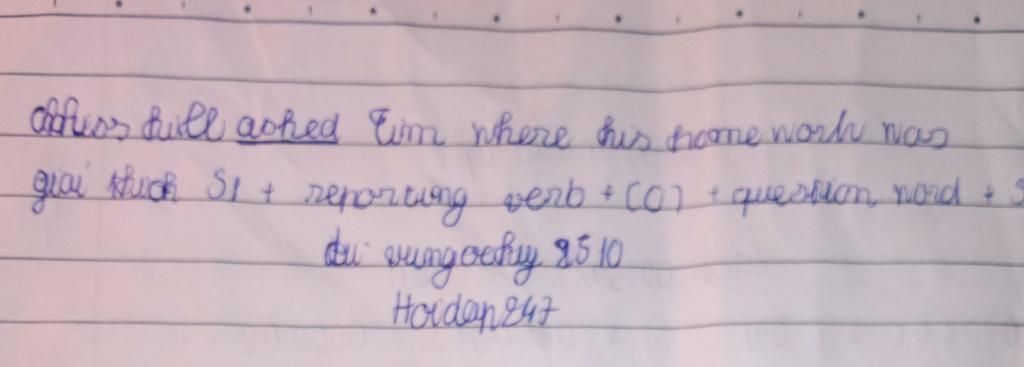 Miss hill asked Tim where his homework was
giai thich S1 + reporting verb + (O) + question word + S
vungochuy 2510
Hoidap247